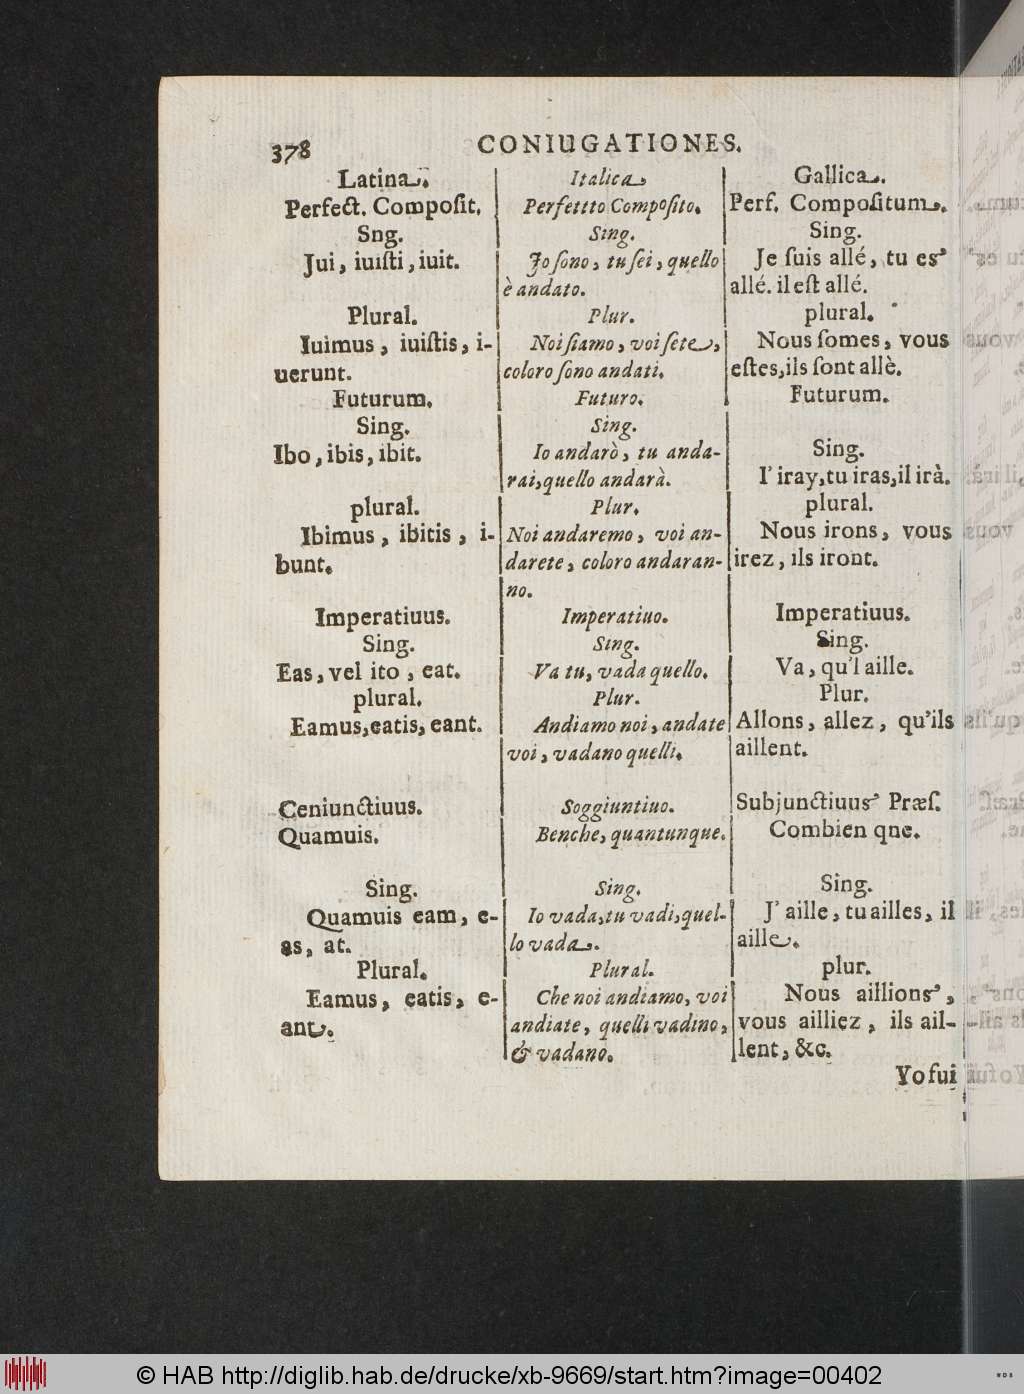 378
CONIUGATIONES.
Latina.
Perfect. Composit.
Sng.
Jui, iuiſti, iuit.
Plural.
Iuimus, iuiſtis, i-
uerunt.
Futurum.
Sing.
Ibo, ibis, ibit.
plural.
Ibimus, ibitis, i-
bunt.
Imperatiuus.
Sing.
Eas, vel ito, eat.
plural.
Eamus, eatis, eant.
Ceniunctiuus.
Quamuis.
Sing.
Quamuis eam, e-
as, at.
Plural.
Eamus, eatis, e-
ant.
Italica
Perfettto Composito.
Sing.
Jo ſono, tu ſei, quello
è andato.
Plur.
Noi ſiamo, voi ſete,
coloro ſono andati.
Futuro.
Sing.
Io andarò, tu anda-
rai, quello andarà.
Plur.
Noi andaremo, voi an-
darete, coloro andaran-
no.
Imperatiuo.
Sing.
Va tu, vada quello.
Plur.
Andiamo noi, andate
voi, vadano quelli.
Soggiuntiuo.
Benche, quantunque.
Sing.
Io vada, tu vadi, quel-
lo vada.
Plural.
Che noi andiamo, voi
andiate, quelli vadino,
& vadano.
Gallica.
Perf. Compoſitum.
Sing.
Je ſuis allé, tu es
allé. il eſt allé.
plural.
Nous ſomes, vous
eſtes, ils ſont allè.
Futurum.
Sing.
I' iray, tu iras, il irà.
plural.
Nous irons, vous
irez, ils iront.
Imperatiuus.
Sing.
Va, qu'l aille.
Plur.
Allons, allez, qu'ils
aillent.
Subjunctiuus Præſ.
Combien qne.
Sing.
J' aille, tu ailles, il
aille.
plur.
Nous aillions,
vous ailliez, ils ail-
lent, &c.
Yo fui
© HAB http://diglib.hab.de/drucke/xb-9669/start.htm?image=00402